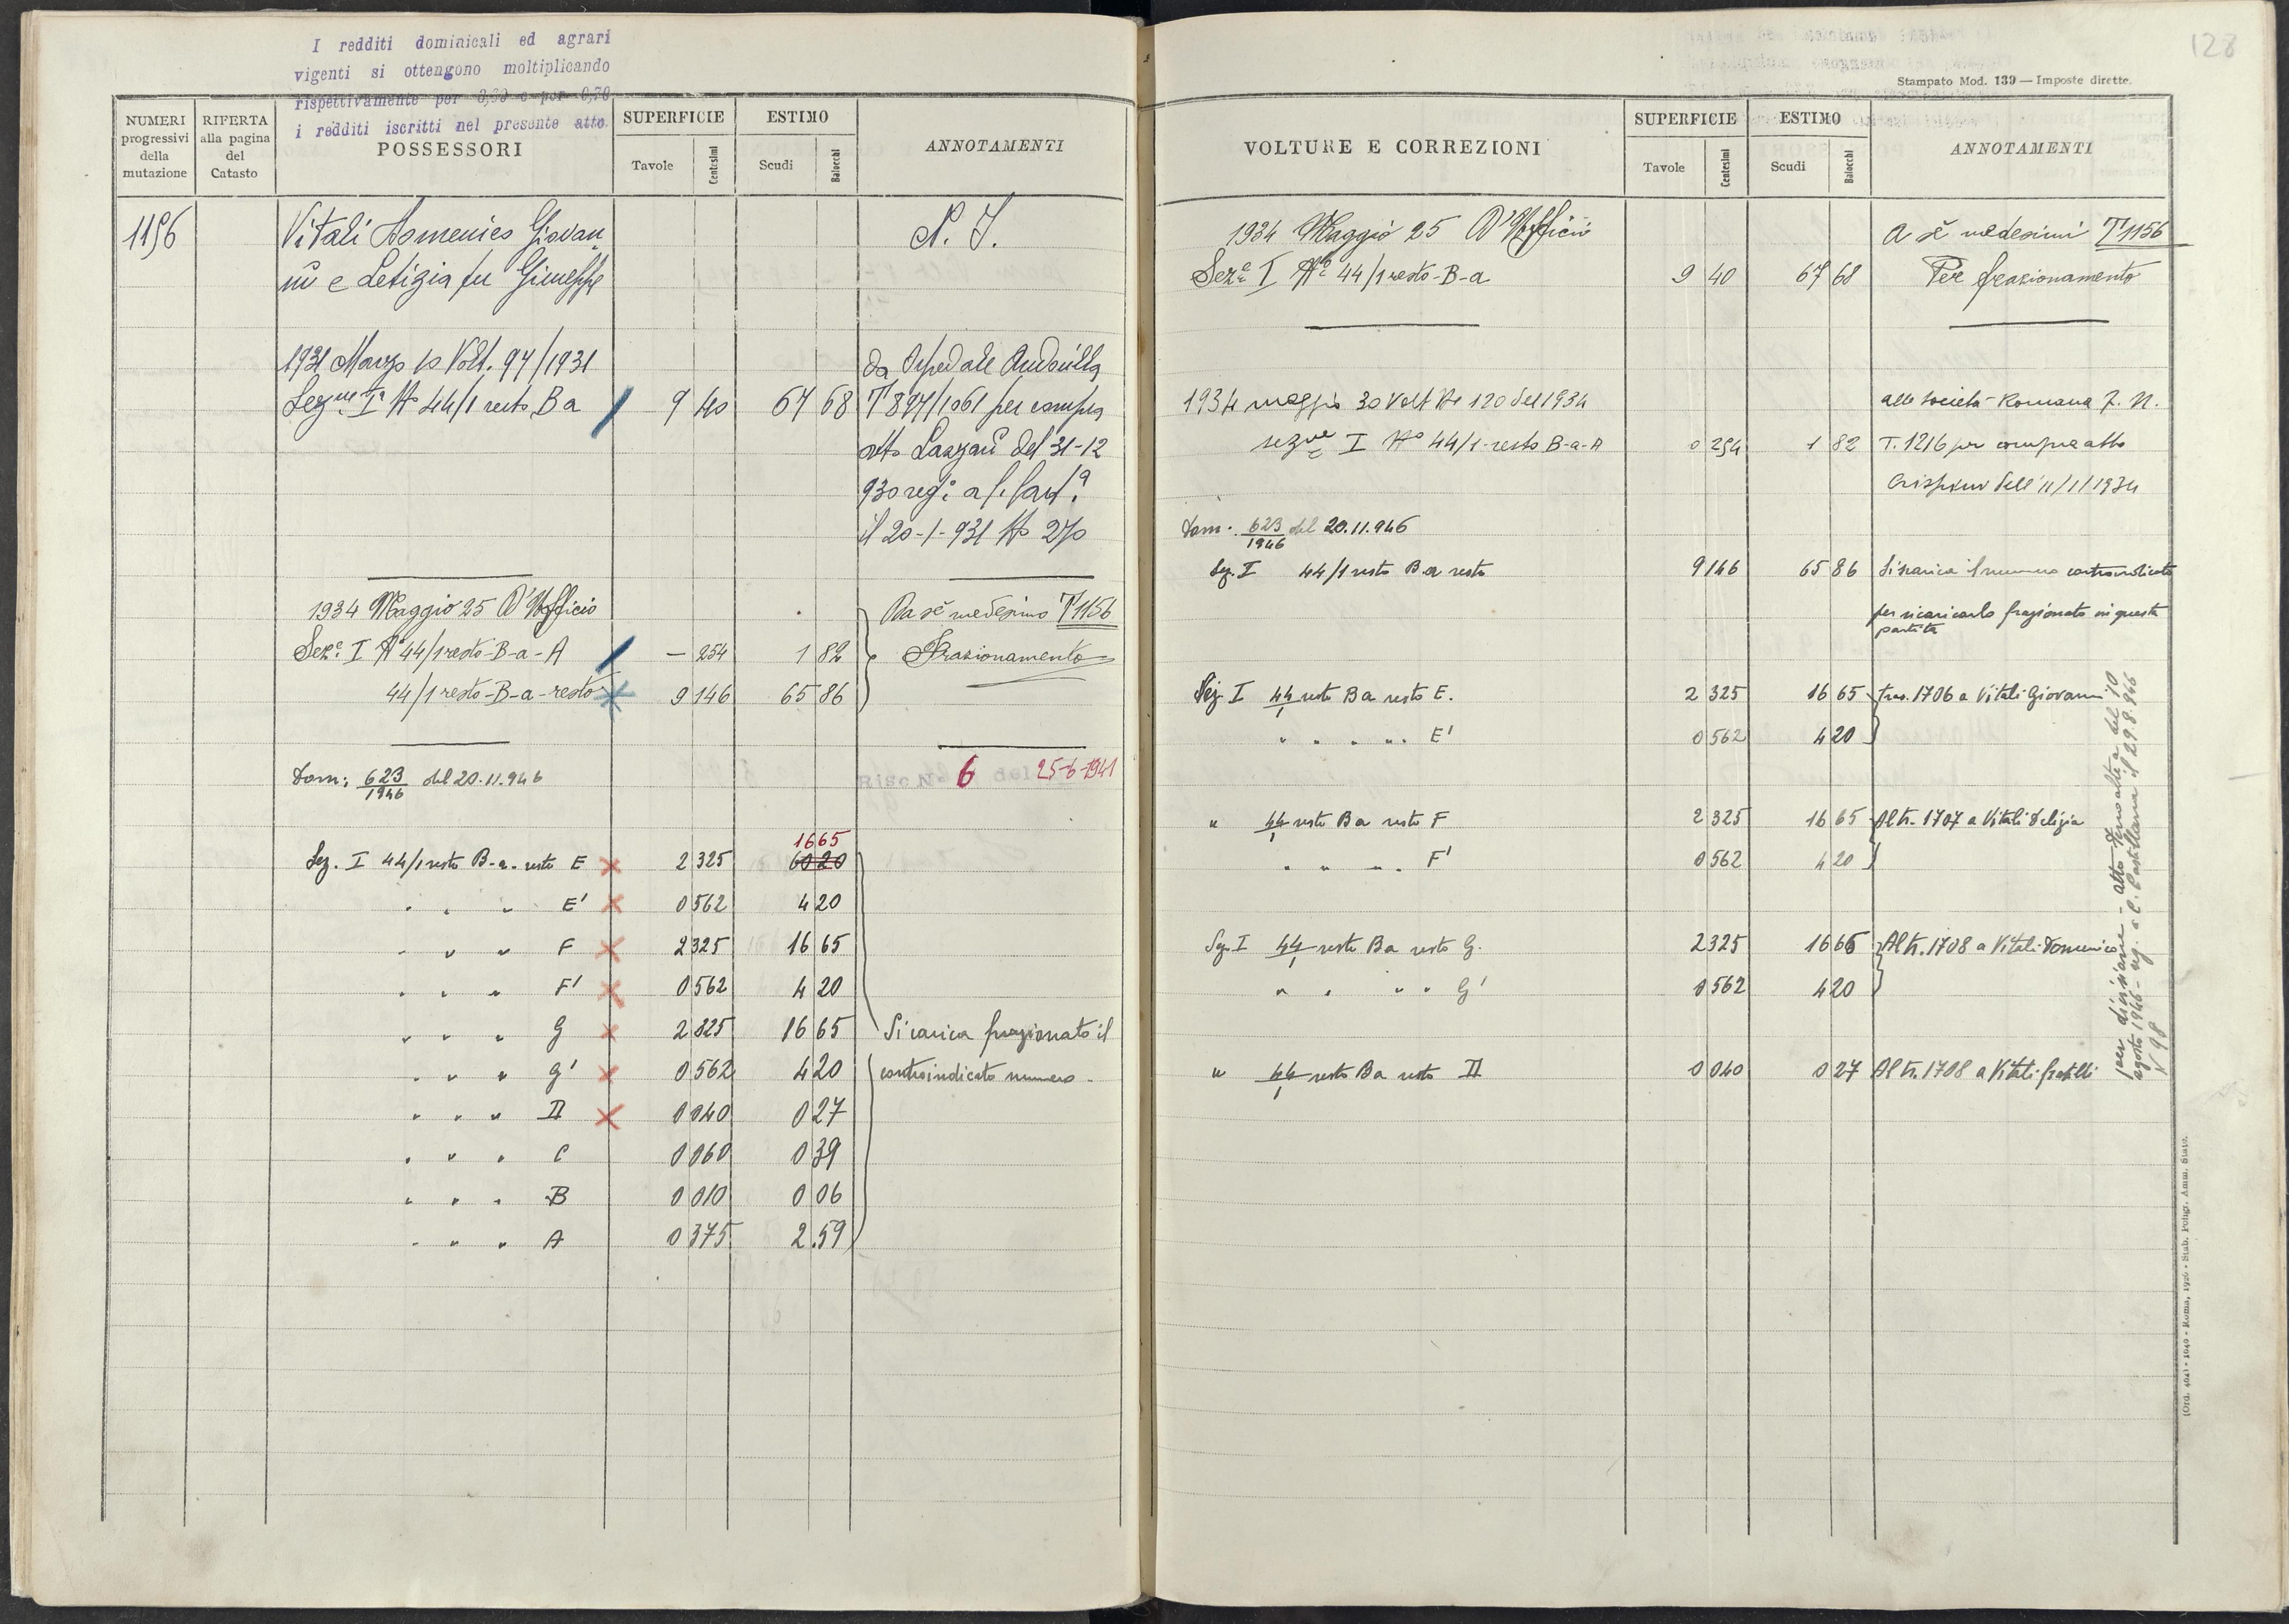 I redditi dominicali ed agrari
vigenti si ottengono moltiplicando
rispettivamente per e per 0,70
i redditi iscritti nel presente atto.
NUMERI progressivi della mutazione
RIFERTA alla pagina del Catasto
POSSESSORI
SUPERFICIE
Tavole Centesimi
ESTIMO
Scudi Baiocchi
ANNOTAMENTI
1156 Vitali Domenico Giovan N. I.
ni e Letizia fu Giuseppe
1931 Marzo 10 Volt. 94/1931 da Ospedale
Sezne Ia No 44/1 resto Ba 9 40 67 68 T 847/1061 per compra
atto Lazzari del 31-12
930 reg:
il 20-1-931 No 270
1934 Maggio 25 D'Ufficio Da sè medesimo T 1156
Seze: I No 44/1 resto-B-a-A — 254 1 82 Frazionamento
44/1 resto-B-a-resto 9 146 65 86
Dom: 623/1946 del 20.11.946 Risc. N. 6 del 25-6-1941
1665
Sez. I 44/1 resto B-a- resto E 2 325 60 20
" " " E' 0 562 4 20
" " " F 2 325 16 65
" " " F' 0 562 4 20
" " " G 2 325 16 65 Si carica frazionato il
" " " G' 0 562 4 20 controindicato numero.
" " " D 0 040 0 27
" " " C 0 060 0 39
" " " B 0 010 0 06
" " " A 0 375 2.59
128
Stampato Mod. 139 — Imposte dirette.
VOLTURE E CORREZIONI
SUPERFICIE
Tavole Centesimi
ESTIMO
Scudi Baiocchi
ANNOTAMENTI
1934 Maggio 25 D'Ufficio A sè medesimi T 1156
Seze: I No 44/1 resto-B-a 9 40 67 68 Per frazionamento
1934 maggio 30 Volt No 120 del 1934 alla Società Romana
sezne I No 44/1-resto B-a-A 0 254 1 82 T. 1216 per compra atto
dell'11/1/1934
Dom. 623/1946 del 20.11.946
Sez. I 44/1 resto Ba resto 9 146 65 86 Si scarica il numero controindicato
per ricaricarlo frazionato in questa
partita
Sez. I 44/1 resto Ba resto E. 2 325 16 65 tras. 1706 a Vitali Giovanni
" " " " " E' 0 562 4 20
" 44/1 resto Ba resto F 2 325 16 65 Al tr. 1707 a Vitali Letizia
" " " " F' 0 562 4 20
Sez. I 44/1 resto Ba resto G. 2 325 16 65 Al tr. 1708 a Vitali Domenico
" " " " G' 0 562 4 20
" 44/1 resto Ba resto D 0 040 0 27 Al tr. 1708 a Vitali fratelli
per divisione - atto del 10
agosto 1946 - reg. a C. Castellana il 29.8.946
N 98
(Ord. 404) - 1040 - Roma, 1926 - Stab. Poligr. Amm. Stato.